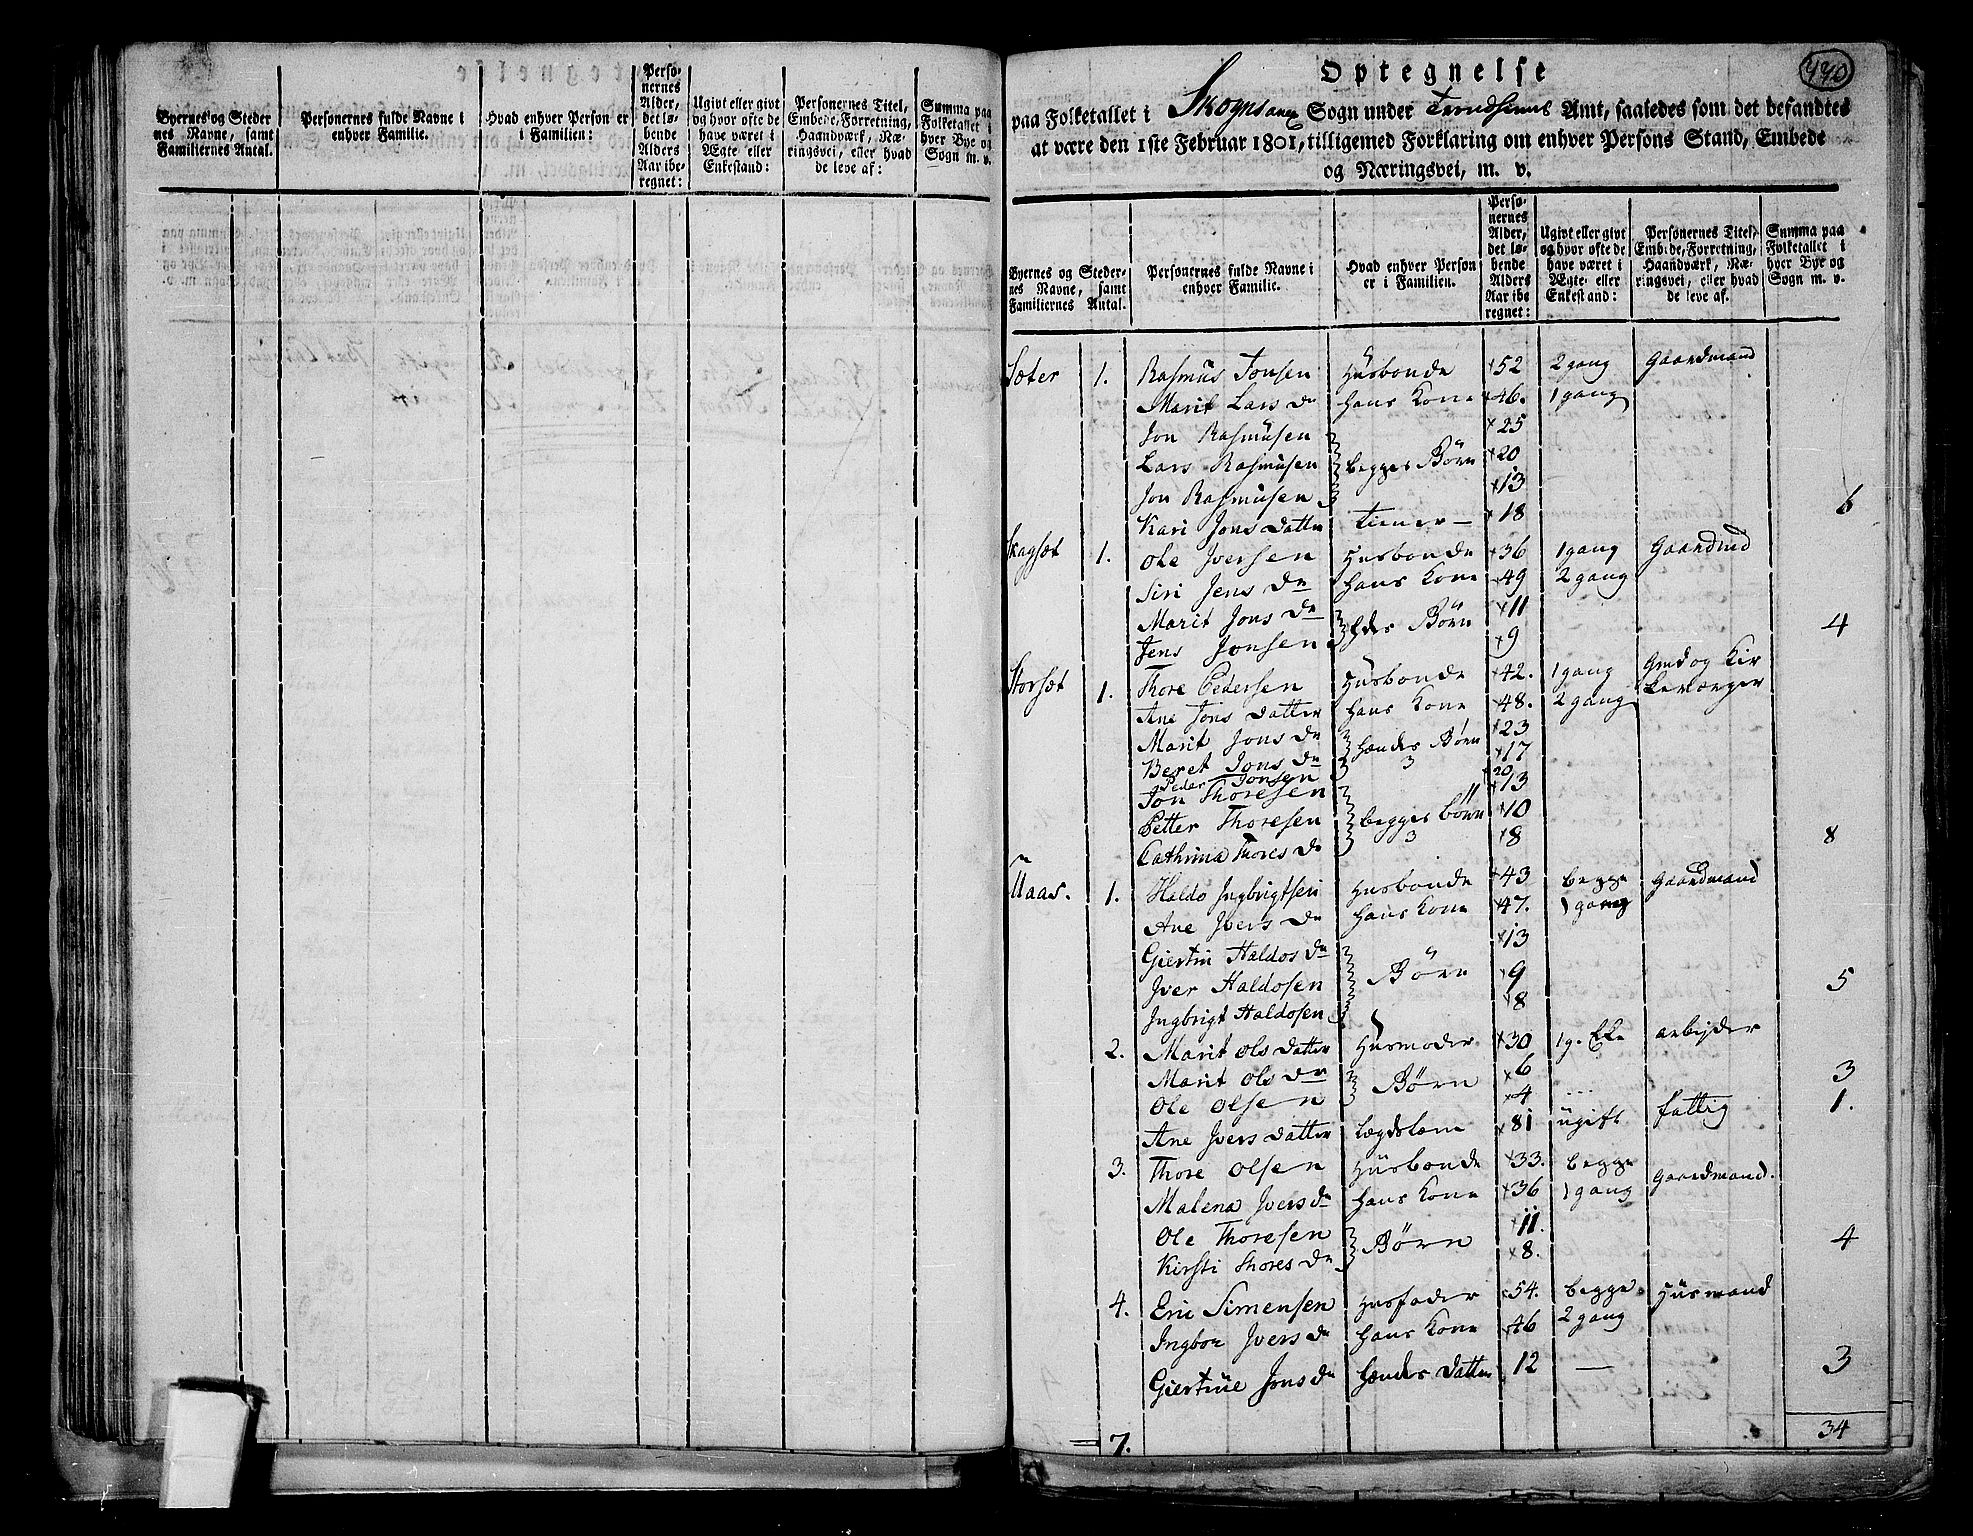 Byernes og Steder
nes Navne, samt
Familiernes Antal.
Personernes fulde Navne i
enhver Familie.
Hvad enhver Person er
i Familien:
Perso-
nernes
Alder,
det lø-
bende
Alders
Aar ibe-
regnet:
Ugivt eller givt
og hvor ofte de
have været i
Ægte eller
Enkestand:
Personernes Titel,
Embede, Forretning,
Haandværk, Næ-
ringsvei, eller hvad
de leve af:
Summa paa
Folketallet i
hver Bye og
Sogn m. v.
440
Optegnelse
paa Folketallet i Skogns Sogn under Trondhiems Amt, saaledes som det befandtes
at være den 1ste Februar 1801, tilligemed Forklaring om enhver Persons Stand, Embede
og Næringsvei, m. v.
Byernes og Steder-
nes Navne, samt
Familiernes Antal.
Personernes fulde Navne i
enhver Familie.
Hvad enhver Person
er i Familien.
Perso-
nernes
Alder,
det lø-
bende
Alders
Aar ibe-
regnet:
Ugivt eller givt
og hvor ofte de
have været i
Ægte- eller
Enkestand:
Personernes Titel,
Embede, Forretning,
Haandværk, Næ-
ringsvei, eller hvad
de leve af.
Summa paa
Folketallet i
hver Bye og
Sogn m. v.
Sæter 1. Rasmus Jonsen Husbonde 52 2 gang Gaardmand
Marit Lars Dr hans Kone 46. 1 gang
Jon Rasmusen 25
Lars Rasmusen begges Börn 20
Jon Rasmusen 13
Kari Jons datter Tiener 18 6
Skagset 1. Ole Iversen Husbonde 36 1 gang Gaardmd
Siri Jens Dr hans Kone 49 2 gang
Marit Jons Dr 11
Jens Jonsen Hdes Börn 9 4
Storset 1. Thore Pedersen Husbonde 42. 1 gang Gmd og Kir
Ane Jons datter hans Kone 48. 2 gang keværger
Marit Jons Dr 23
Beret Jons Dr hendes Börn 3 17
Peder Jonsen 20
Jon Thoresen 13
Petter Thoresen begges börn 3 10
Cathrina Thores Dr 8 8
Maas. 1. Haldo Ingbrigtsen Husbonde 43 begge Gaardmand
Ane Ivers Dr hans Kone 47. 1 gang
Giertru Haldos Dr 13
Iver Haldosen Börn 9 5
Ingbrigt Haldosen 8
2. Marit Ols datter Husmoder 30 1 g. Eke arbejder
Marit Ols Dr 6
Ole Olsen Börn 4 3
Ane Ivers datter Lægdslem 81 ugift fattig 1.
3. Thore Olsen Husbonde 33. begge Gaardmand.
Malena Ivers Dr hans Kone 36 1 gang
Ole Thoresen 11.
Kirsti Thores Dr Börn 8. 4
4. Eric Simensen Husfader 54. begge Husmand
Ingbor Ivers Dr hans Kone 46 2 gang
Giertrue Jons Dr hendes datter 12 — 3
7. 34